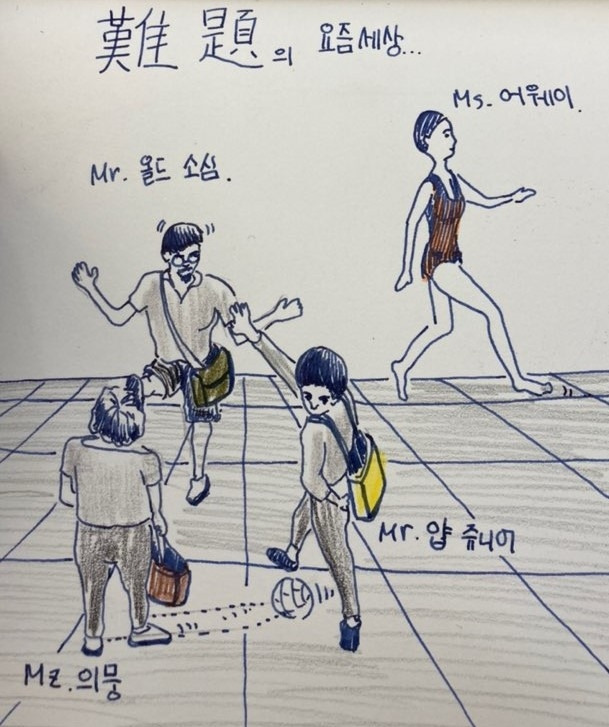 難題의 요즘세상...
Ms. 어웨이.
Mr. 올드 소심.
Mr. 얍 쥬니어
Mz. 의뭉